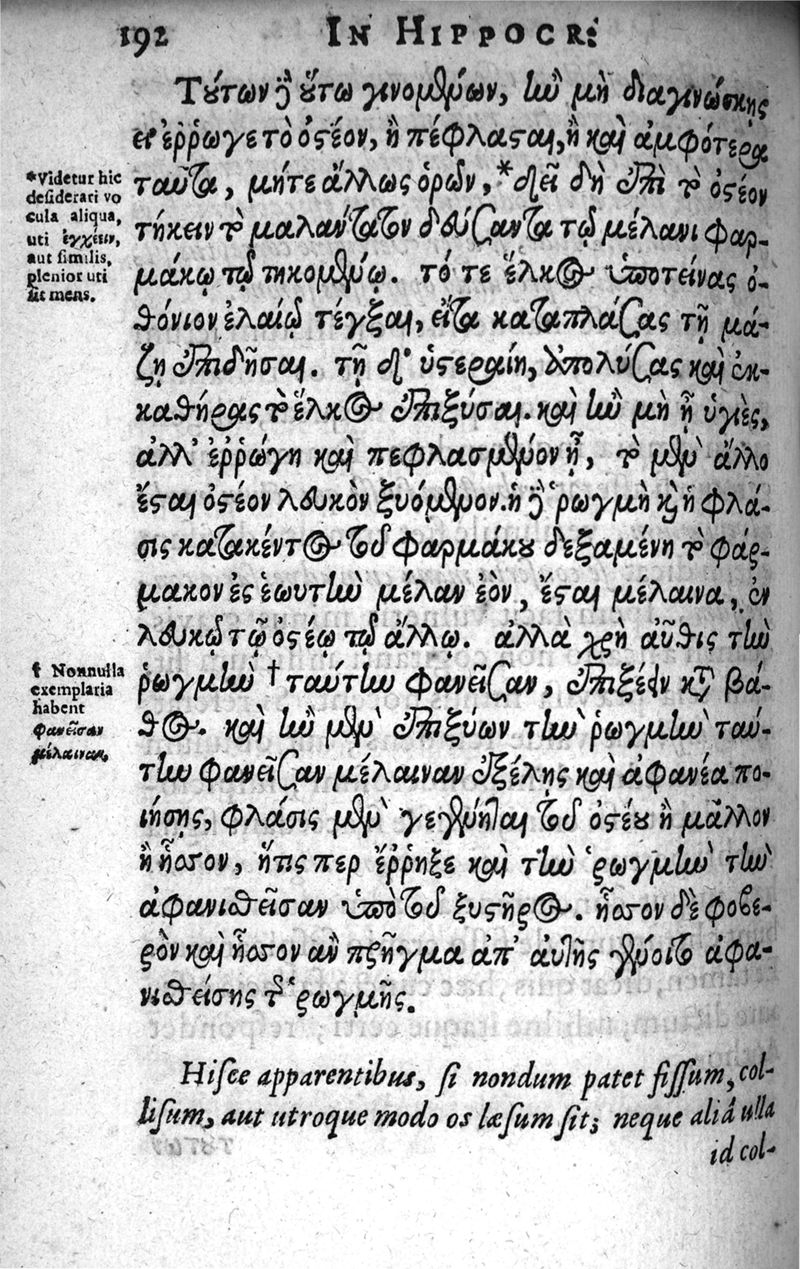 192 IN HIPPOCR:
Τούτων δὲ οὕτω γινομένων, ἢν μὴ διαγινώσκῃς
εἰ ἐῤῥωγε τὸ ὀστέον, ἢ πέφλασται, ἢ καὶ ἀμφότερα
ταῦτα, μήτε ἄλλως ὁρῶν, * δεῖ δὴ ἐπὶ τὸ ὀστέον
τήκειν τὸ μαλαντατον δεύσαντα τῷ μέλανι φαρ-
μάκῳ τῷ τηκομένῳ. τό τε ἕλκος ὑποτείνας ὀ-
θόνιον ἐλαίῳ τέγξαι, εἶτα καταπλάσας τῇ μά-
ζῃ ἐπιδῆσαι. τῇ δ' ὑστεραίῃ, ἀπολύσας καὶ ἐκ-
καθήρας τὸ ἕλκος ἐπιξύσαι. καὶ ἢν μὴ ᾖ ὑγιὲς,
ἀλλ' ἐῤῥώγῃ καὶ πεφλασμένον ᾖ, τὸ μὲν ἄλλο
ἔσται ὀστέον λευκὸν ξυόμενον. ἡ δὲ ῥωγμὴ καὶ ἡ φλά-
σις κατακέντος τοῦ φαρμάκου δεξαμένη τὸ φάρ-
μακον ἐς ἑωυτὴν μέλαν ἐὸν, ἔσται μέλαινα, ἐν
λευκῷ τῷ ὀστέῳ τῷ ἄλλῳ. ἀλλὰ χρὴ αὖθις τὴν
ῥωγμὴν † ταύτην φανεῖσαν, ἐπιξέειν κατὰ βά-
θος. καὶ ἢν μὲν ἐπιξύων τὴν ῥωγμὴν ταύ-
την φανεῖσαν μέλαιναν ἐξέλῃς καὶ ἀφανέα ποι-
ιήσῃς, φλάσις μὲν γεγένηται τοῦ ὀστέου ἢ μᾶλλον
ἢ ἧσσον, ἥτις περ ἔῤῥηξε καὶ τὴν ῥωγμὴν τὴν
ἀφανισθεῖσαν ὑπὸ τοῦ ξυστῆρος. ἧσσον δὲ φοβε-
ρὸν καὶ ἧσσον ἂν πρῆγμα ἀπ' αὐτῆς γένοιτο ἀφα-
νισθείσης τῆς ῥωγμῆς.
Hisce apparentibus, si nondum patet fissum, col-
lisum, aut utroque modo os læsum sit; neque aliâ ulla
id col-
*Videtur hic
desiderari vo
cula aliqua,
uti ἐγχέειν,
aut similis,
plenior uti
sit mens.
† Nonnulla
exemplaria
habent
φανεῖσαν
μέλαιναν,